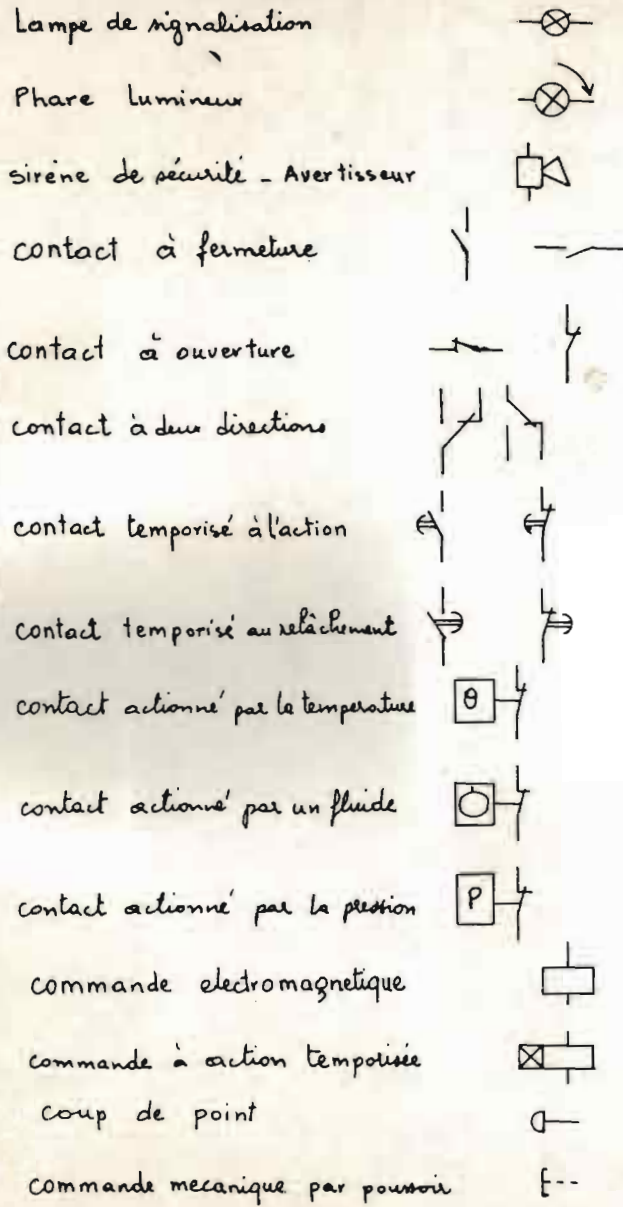 Lampe de signalisation
Phare Lumineux
sirène de sécurité - Avertisseur
contact à fermeture
contact à ouverture
contact à deux directions
contact temporisé à l'action
contact temporisé au relâchement
contact actionné par la temperature θ
contact actionné par un fluide
contact actionné par la pression P
commande electromagnetique
commande à action temporisée
coup de point
commande mecanique par poussoir